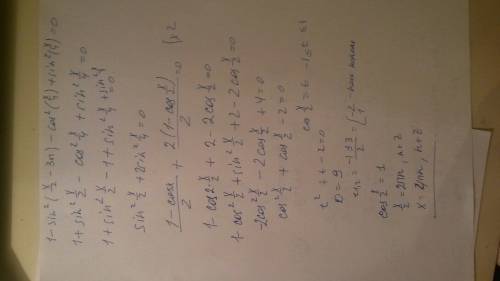 1-sin²(x/2 - 3π) - cos²(x/4) + sin²(x/4) = 0
1+sin² x/2 - cos² x/4 + sin² x/4 = 0
1+sin² x/2 - 1 + sin² x/4 + sin² x/4 = 0
sin² x/2 + 2sin² x/4 = 0
(1-cosx)/2 + 2(1-cos x/2)/2 = 0 |x2
1-cos2 x/2 + 2 - 2cos x/2 = 0
1-cos² x/2 + sin² x/2 + 2 - 2cos x/2 = 0
-2cos² x/2 - 2cos x/2 + 4 = 0
cos² x/2 + cos x/2 - 2 = 0
cos x/2 = t -1≤t≤1
t² + t - 2 = 0
D = 9
t1,2 = (-1±3)/2 = [-2
1
cos x/2 = 1
x/2 = 2πn, n∈Z
x = 4πn, n∈Z